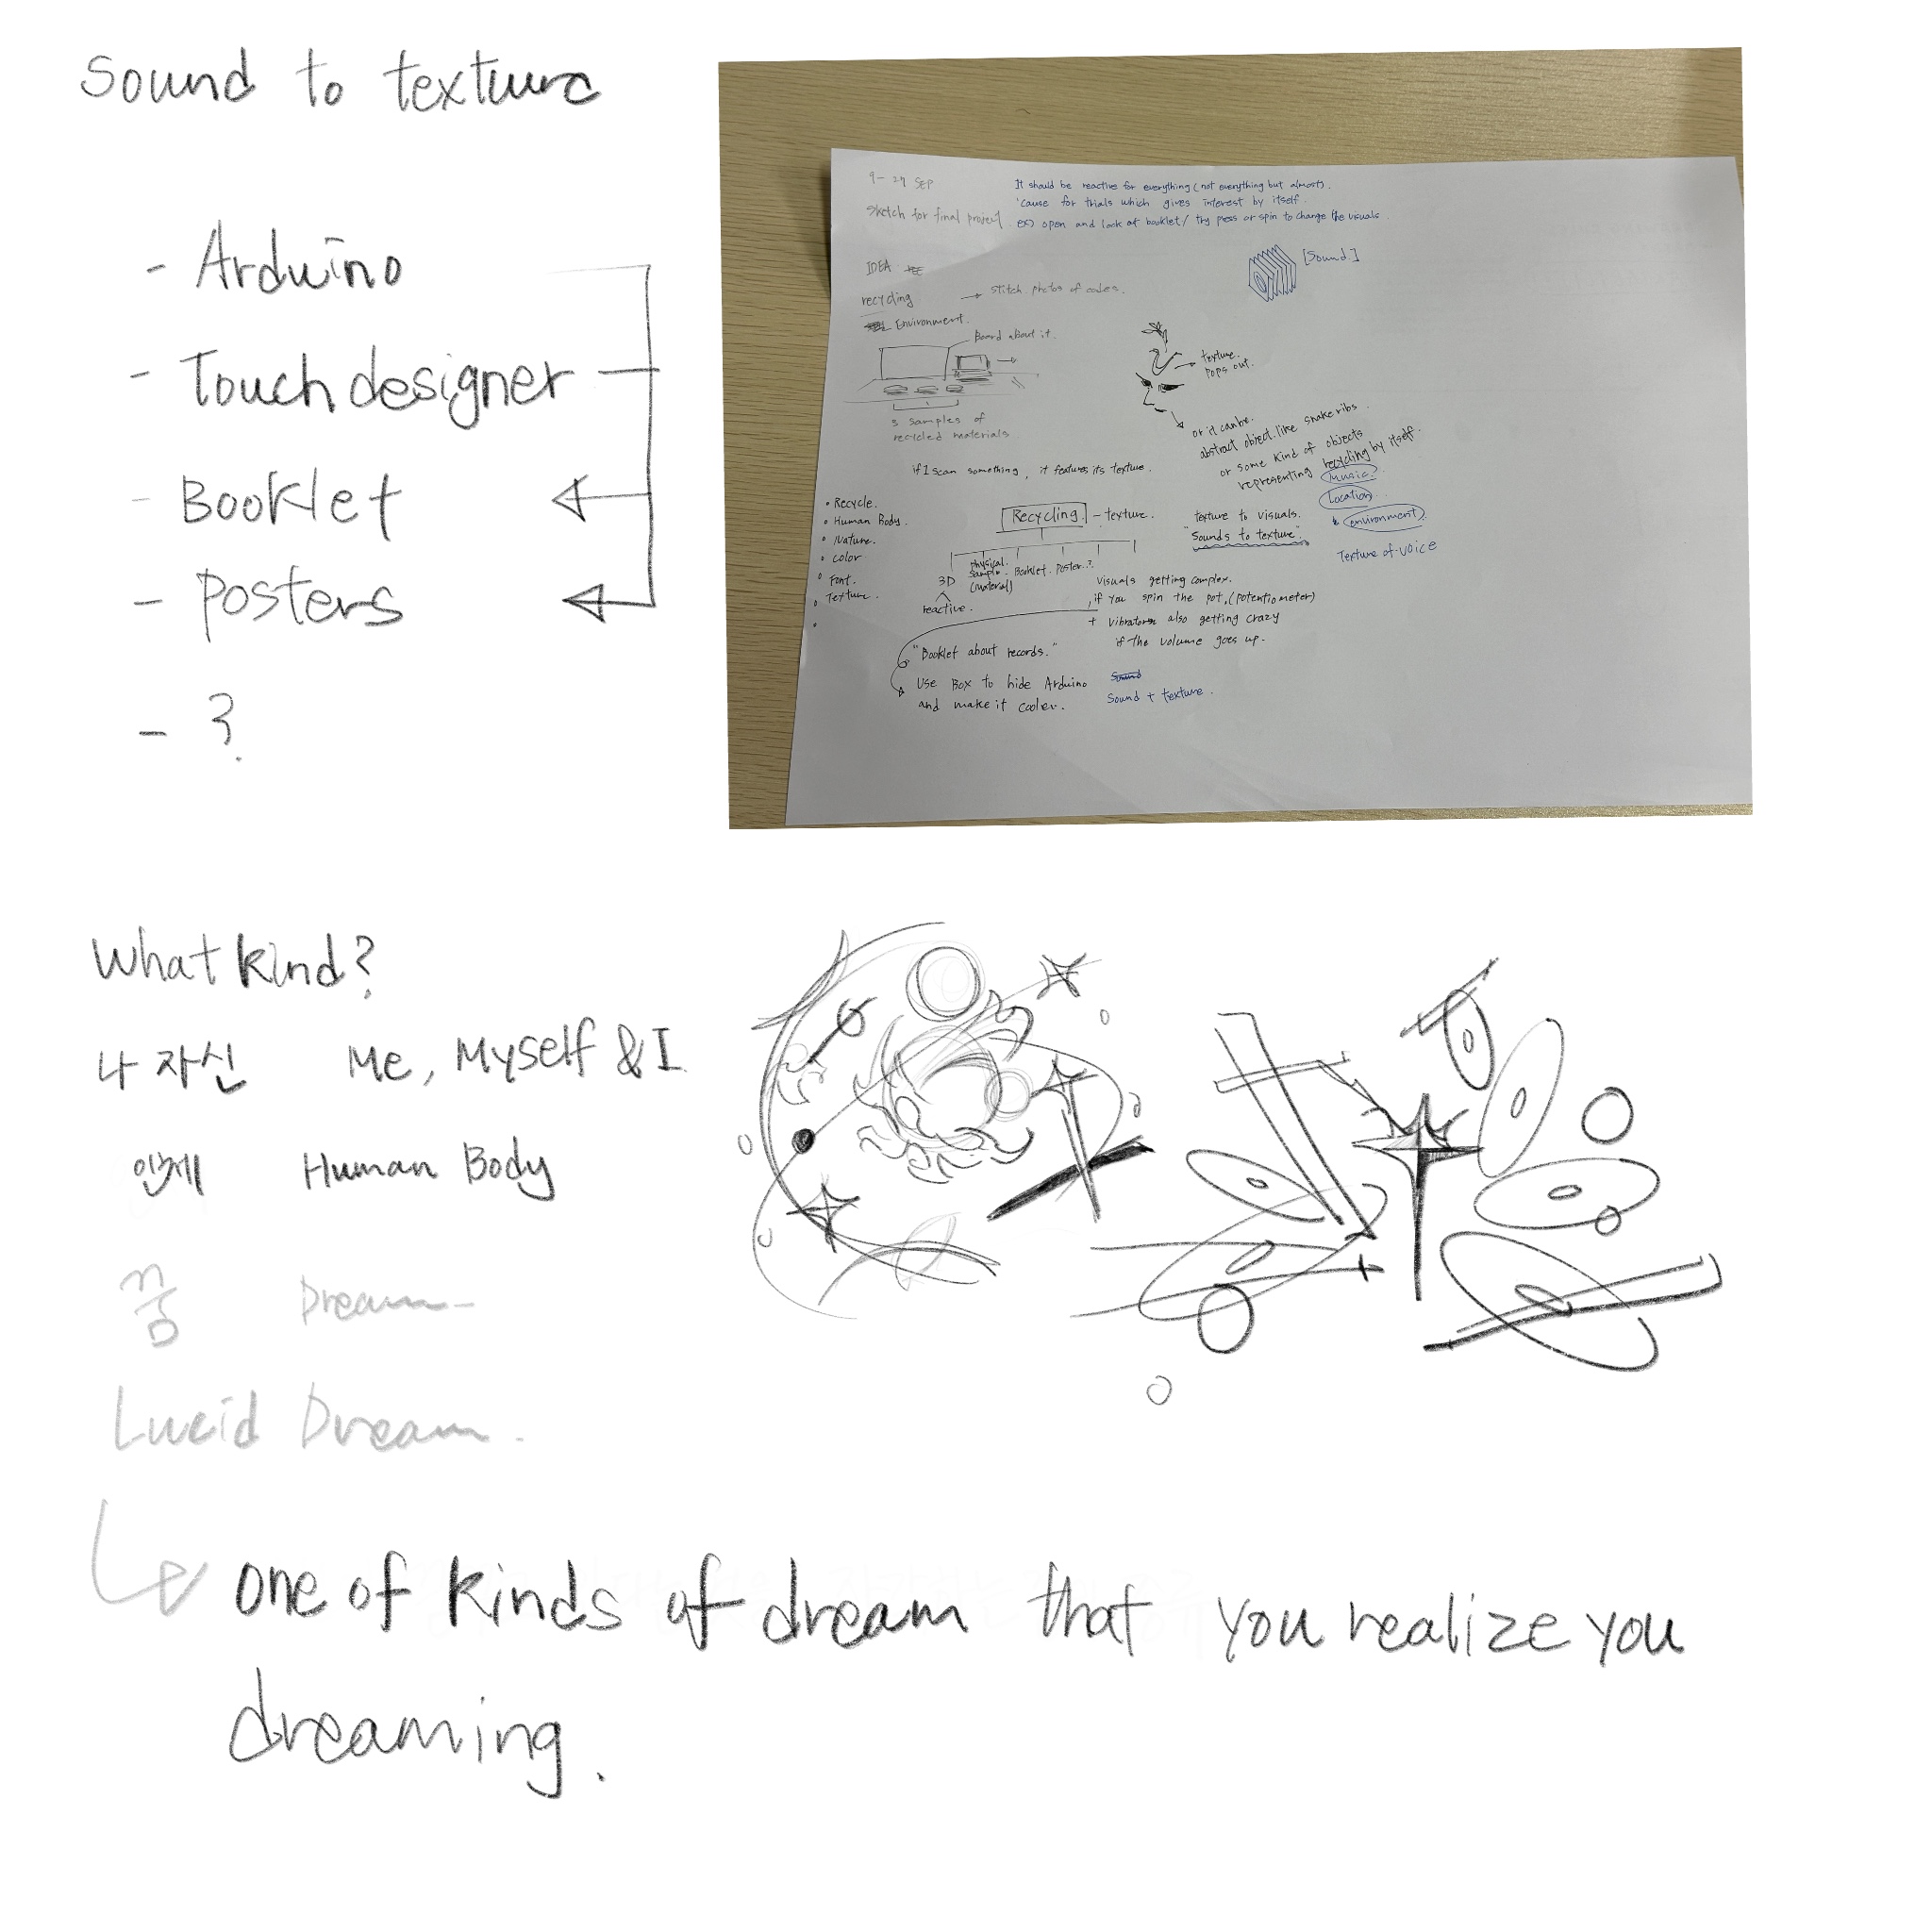 Sound to texture
- Arduino
- Touchdesigner
- Booklet
- Posters
- ?
9- 27 SEP
Sketch for final project.
It should be reactive for everything (not everything but almost).
'cause for trials which gives interest by itself.
ex) open and look at booklet / try press or spin to change the visuals
IDEA
recycling
→ stitch photos of codes.
Environment.
Board about it.
[Sound.]
5 samples of
recycled materials
texture.
pops out.
or it can be.
abstract object. like snake ribs.
or some kind of objects
representing recycling by itself.
if I scan something, it features its texture.
Music.
Location.
environment.
Texture of voice
• Recycle.
• Human Body.
• Nature.
• Color
• Font.
• Texture.
Recycling - texture.
texture to visuals.
"Sounds to texture".
3D
reactive.
physical.
sample.
(material)
Booklet.
Poster..?
Visuals getting complex.
if you spin the pot. (potentiometer)
+ vibrators also getting crazy
if the volume goes up.
"Booklet about records."
Use Box to hide Arduino
and make it cooler.
Sound
Sound + texture.
What kind?
나 자신 Me, Myself & I
인체 Human Body
꿈 Dream
Lucid Dream.
one of kinds of dream that you realize you
dreaming.